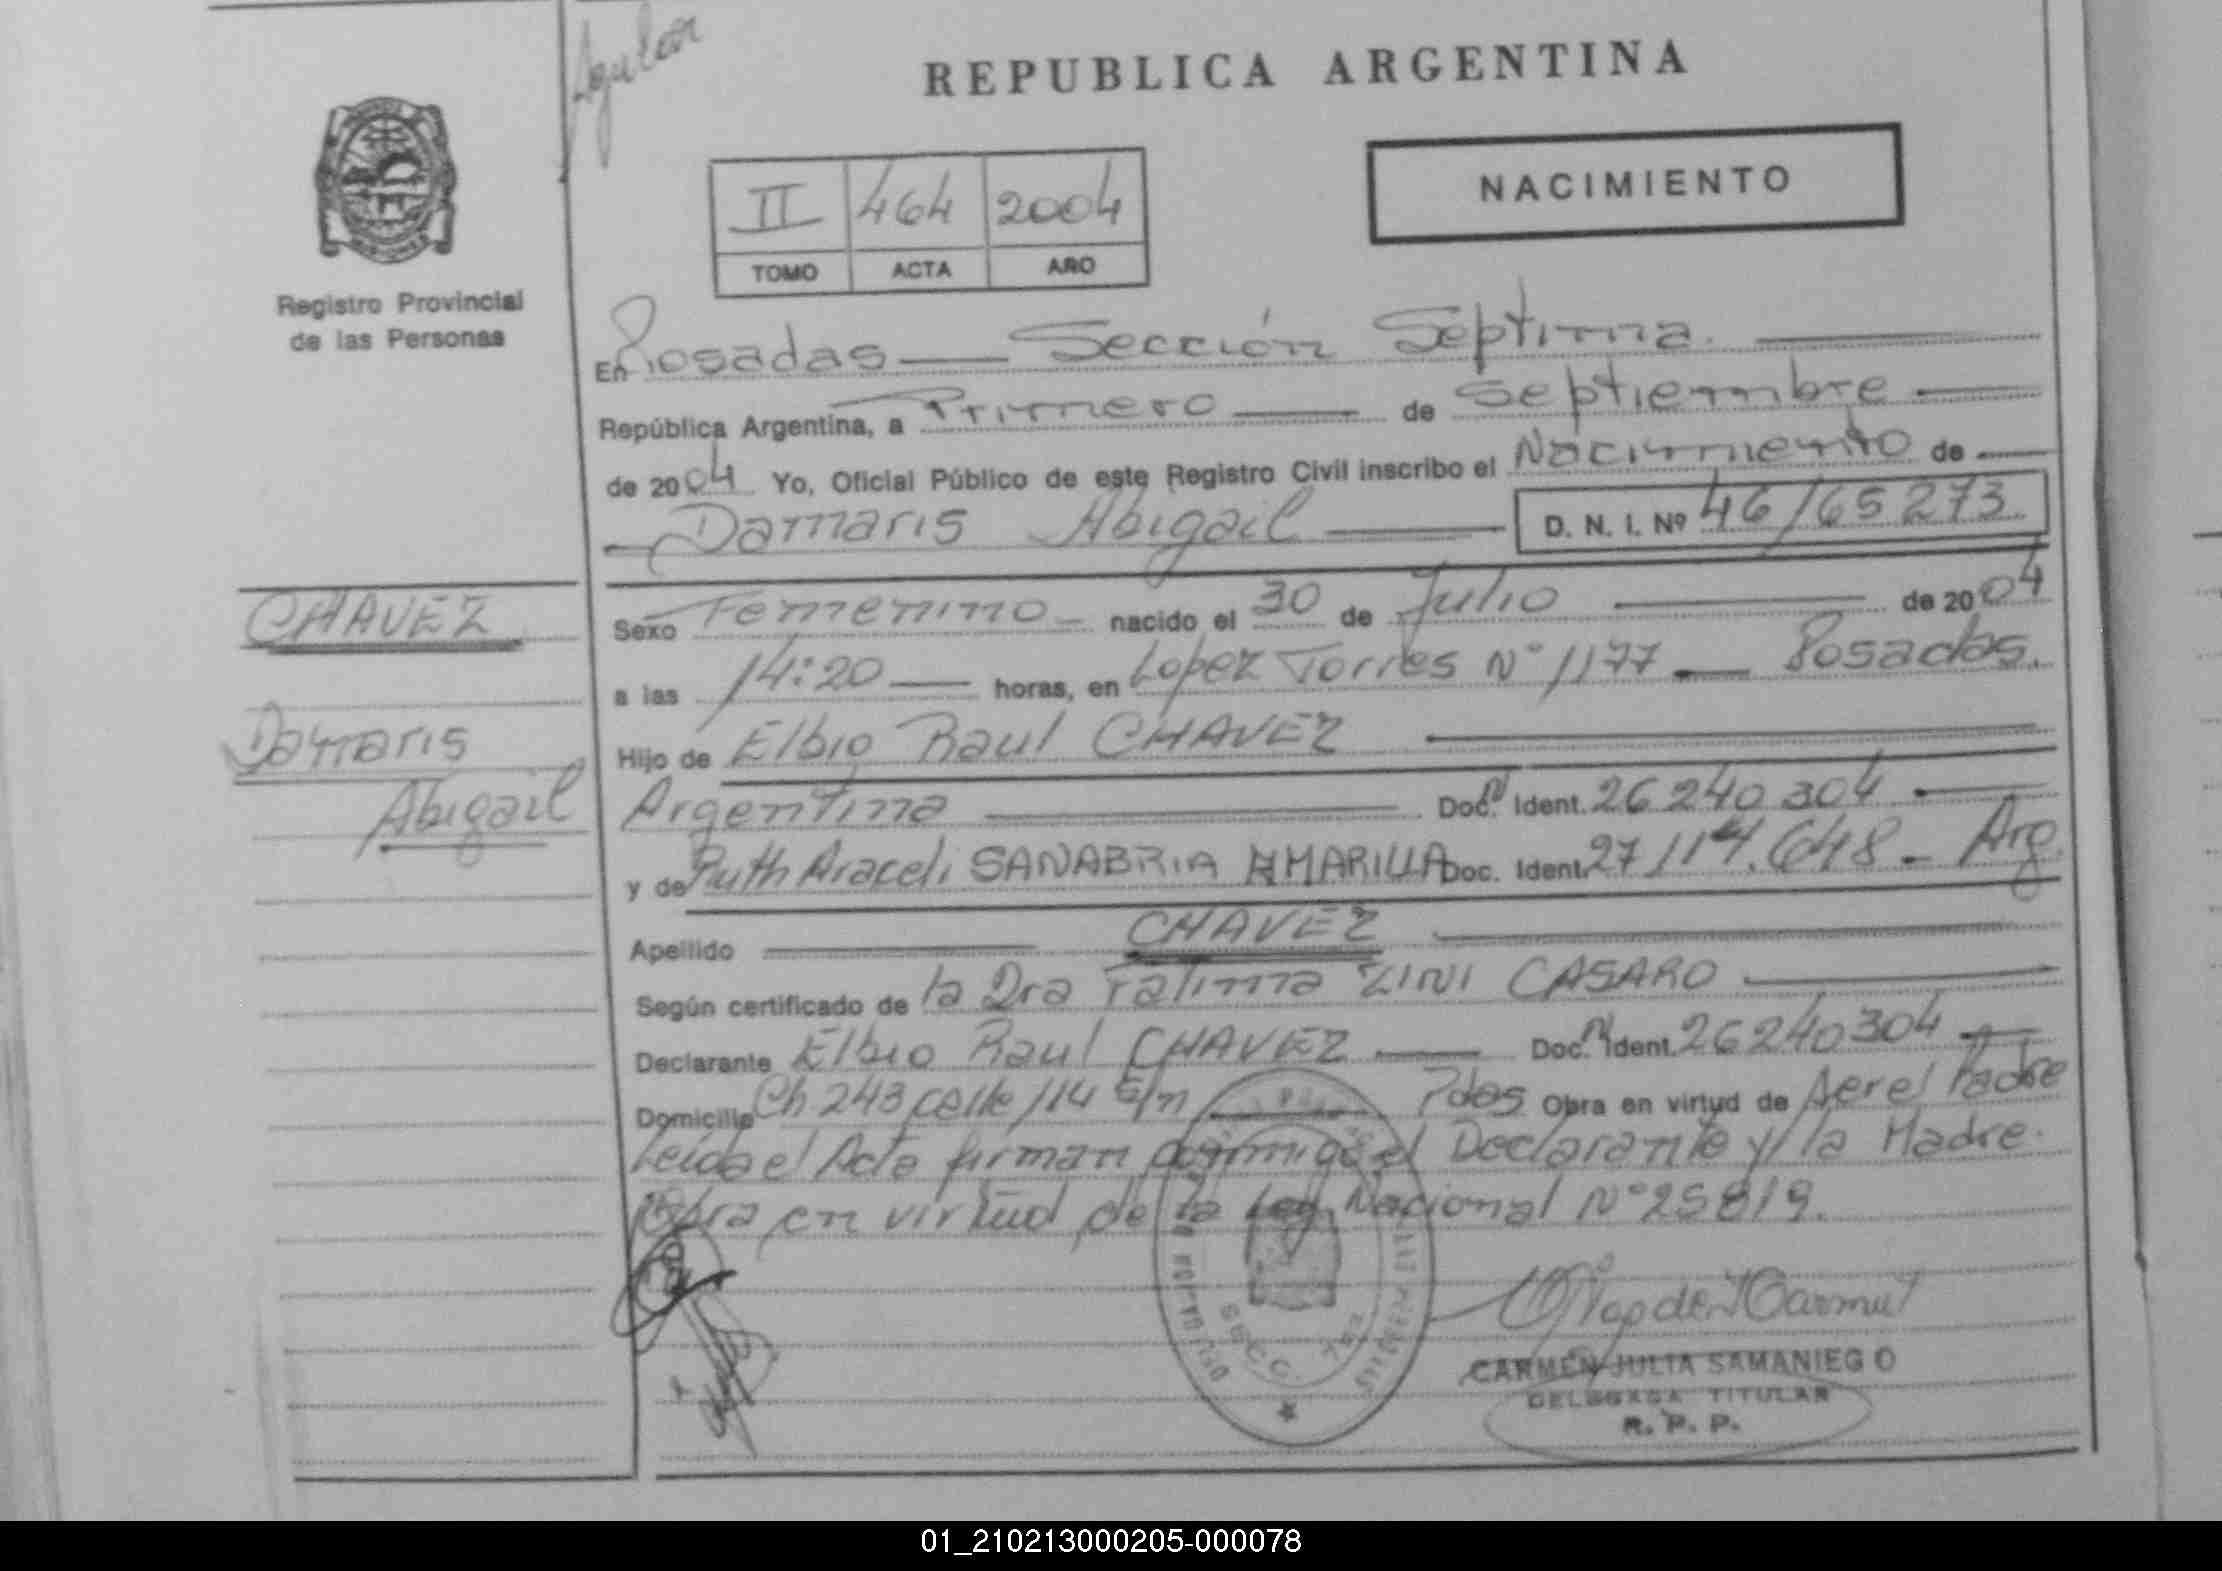 Aguilar
REPUBLICA ARGENTINA
NACIMIENTO
II 464 2004
TOMO ACTA AÑO
Registro Provincial
de las Personas
En Posadas Sección Septima.
República Argentina, a Primero de Septiembre
de 2004 Yo, Oficial Público de este Registro Civil inscribo el Nacimiento de
Damaris Abigail D. N. I. Nº 46/65273.
CHAVEZ
Damaris
Abigail
Sexo Femenino nacido el 30 de Julio de 2004
a las 14:20 horas, en Lopez Torres N° 1177 Posadas.
Hijo de Elbio Raul CHAVEZ
Argentina Doc. Ident. 26240304
y de Ruth Araceli SANABRIA AMARILLA Doc. Ident. 27/114.648 - Arg.
Apellido CHAVEZ
Según certificado de la Dra Fatima ZINI CASARO
Declarante Elbio Raul CHAVEZ Doc. Ident. 26240304
Domicilio Ch 243 calle 114 S/n Pdas Obra en virtud de ser el Padre
Leida el Acta firman conmigo el Declarante y la Madre.
Obra en virtud de la Ley Nacional N° 25819.
CARMEN JULIA SAMANIEGO
DELEGADA TITULAR
R. P. P.
01_210213000205-000078